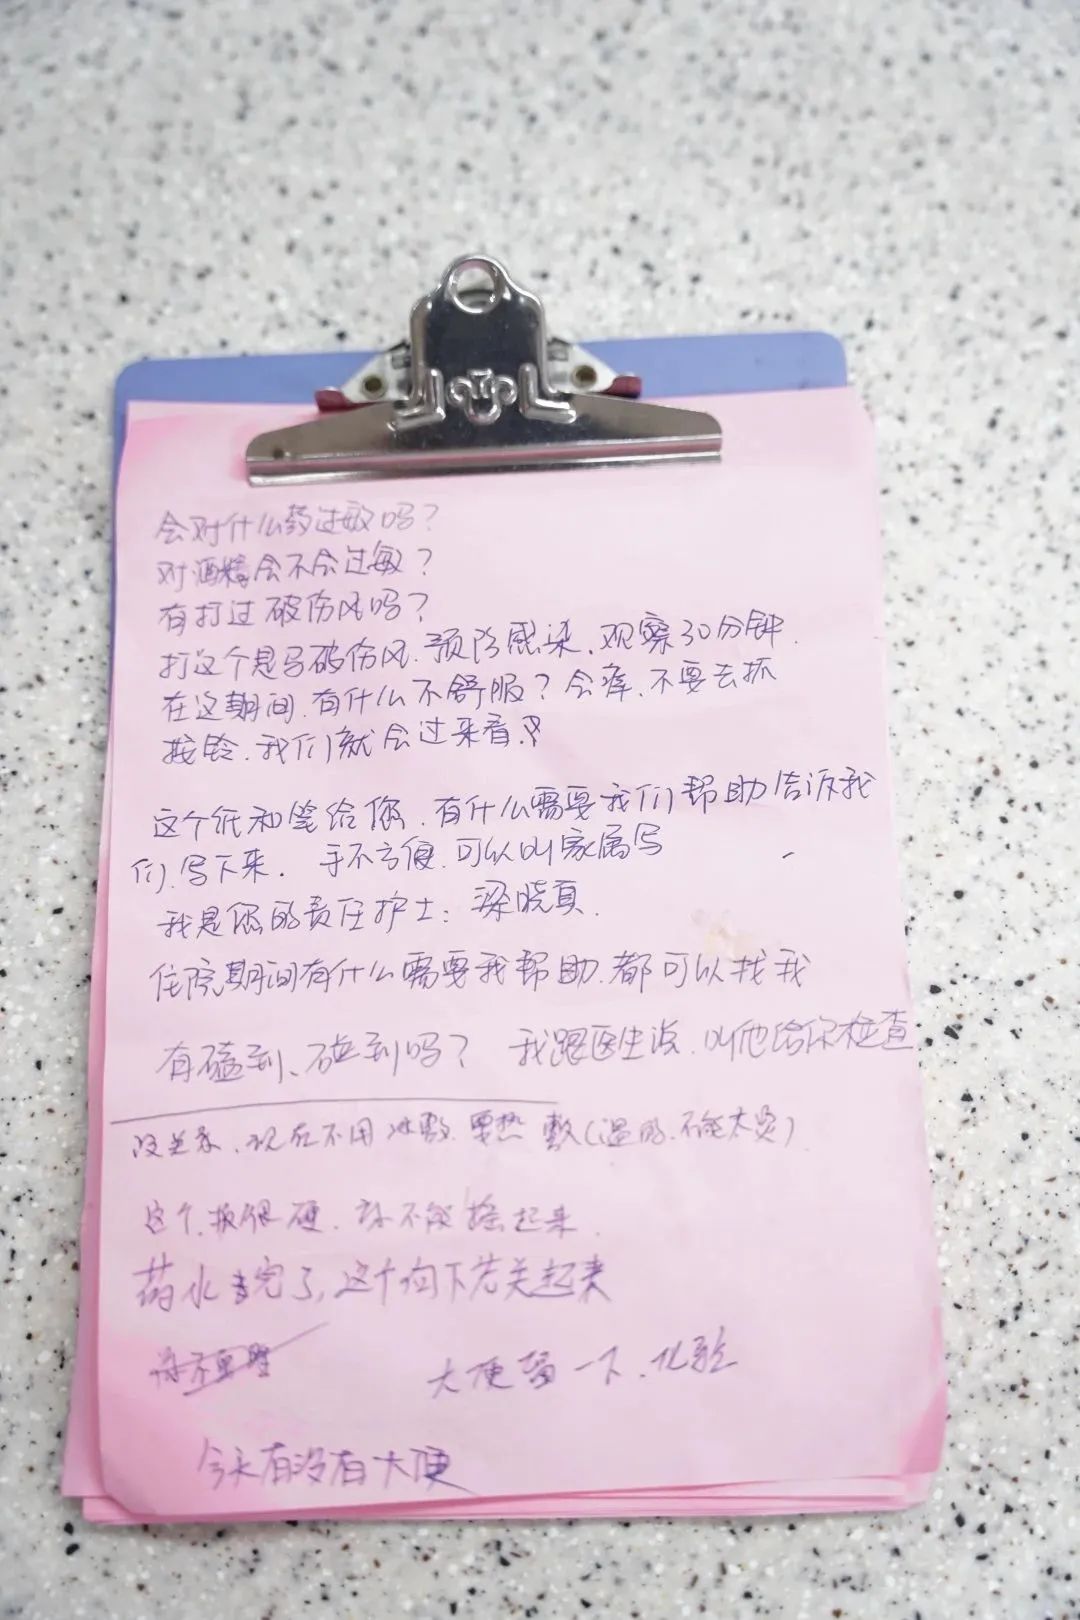 会对什么药过敏吗？
对酒精会不会过敏？
有打过破伤风吗？
打这个是马破伤风.预防感染.观察30分钟.
在这期间.有什么不舒服？会痒.不要去抓
按铃.我们就会过来看.
这个纸和笔给您.有什么需要我们帮助告诉我
们.写下来. 手不方便.可以叫家属写
我是您的责任护士：梁晓真.
住院期间有什么需要我帮助.都可以找我
有磕到、碰到吗？ 我跟医生说.叫他给你检查.
没关系.现在不用冰敷.要热敷(温的.不能太烫)
这个.板很硬. 你不能摇起来.
药水滴完了,这个向下先关起来
大便留一下.化验
今天有没有大便